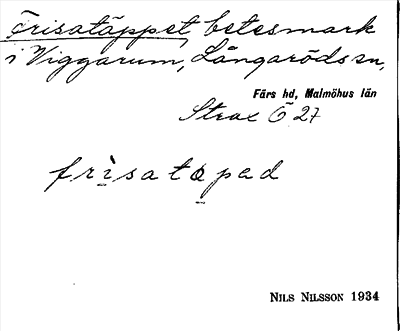 Frisatäppet, betesmark
i Viggarum, Långaröds sn,
Färs hd, Malmöhus län
Strax Ö 27
frisatäpad
NILS NILSSON 1934